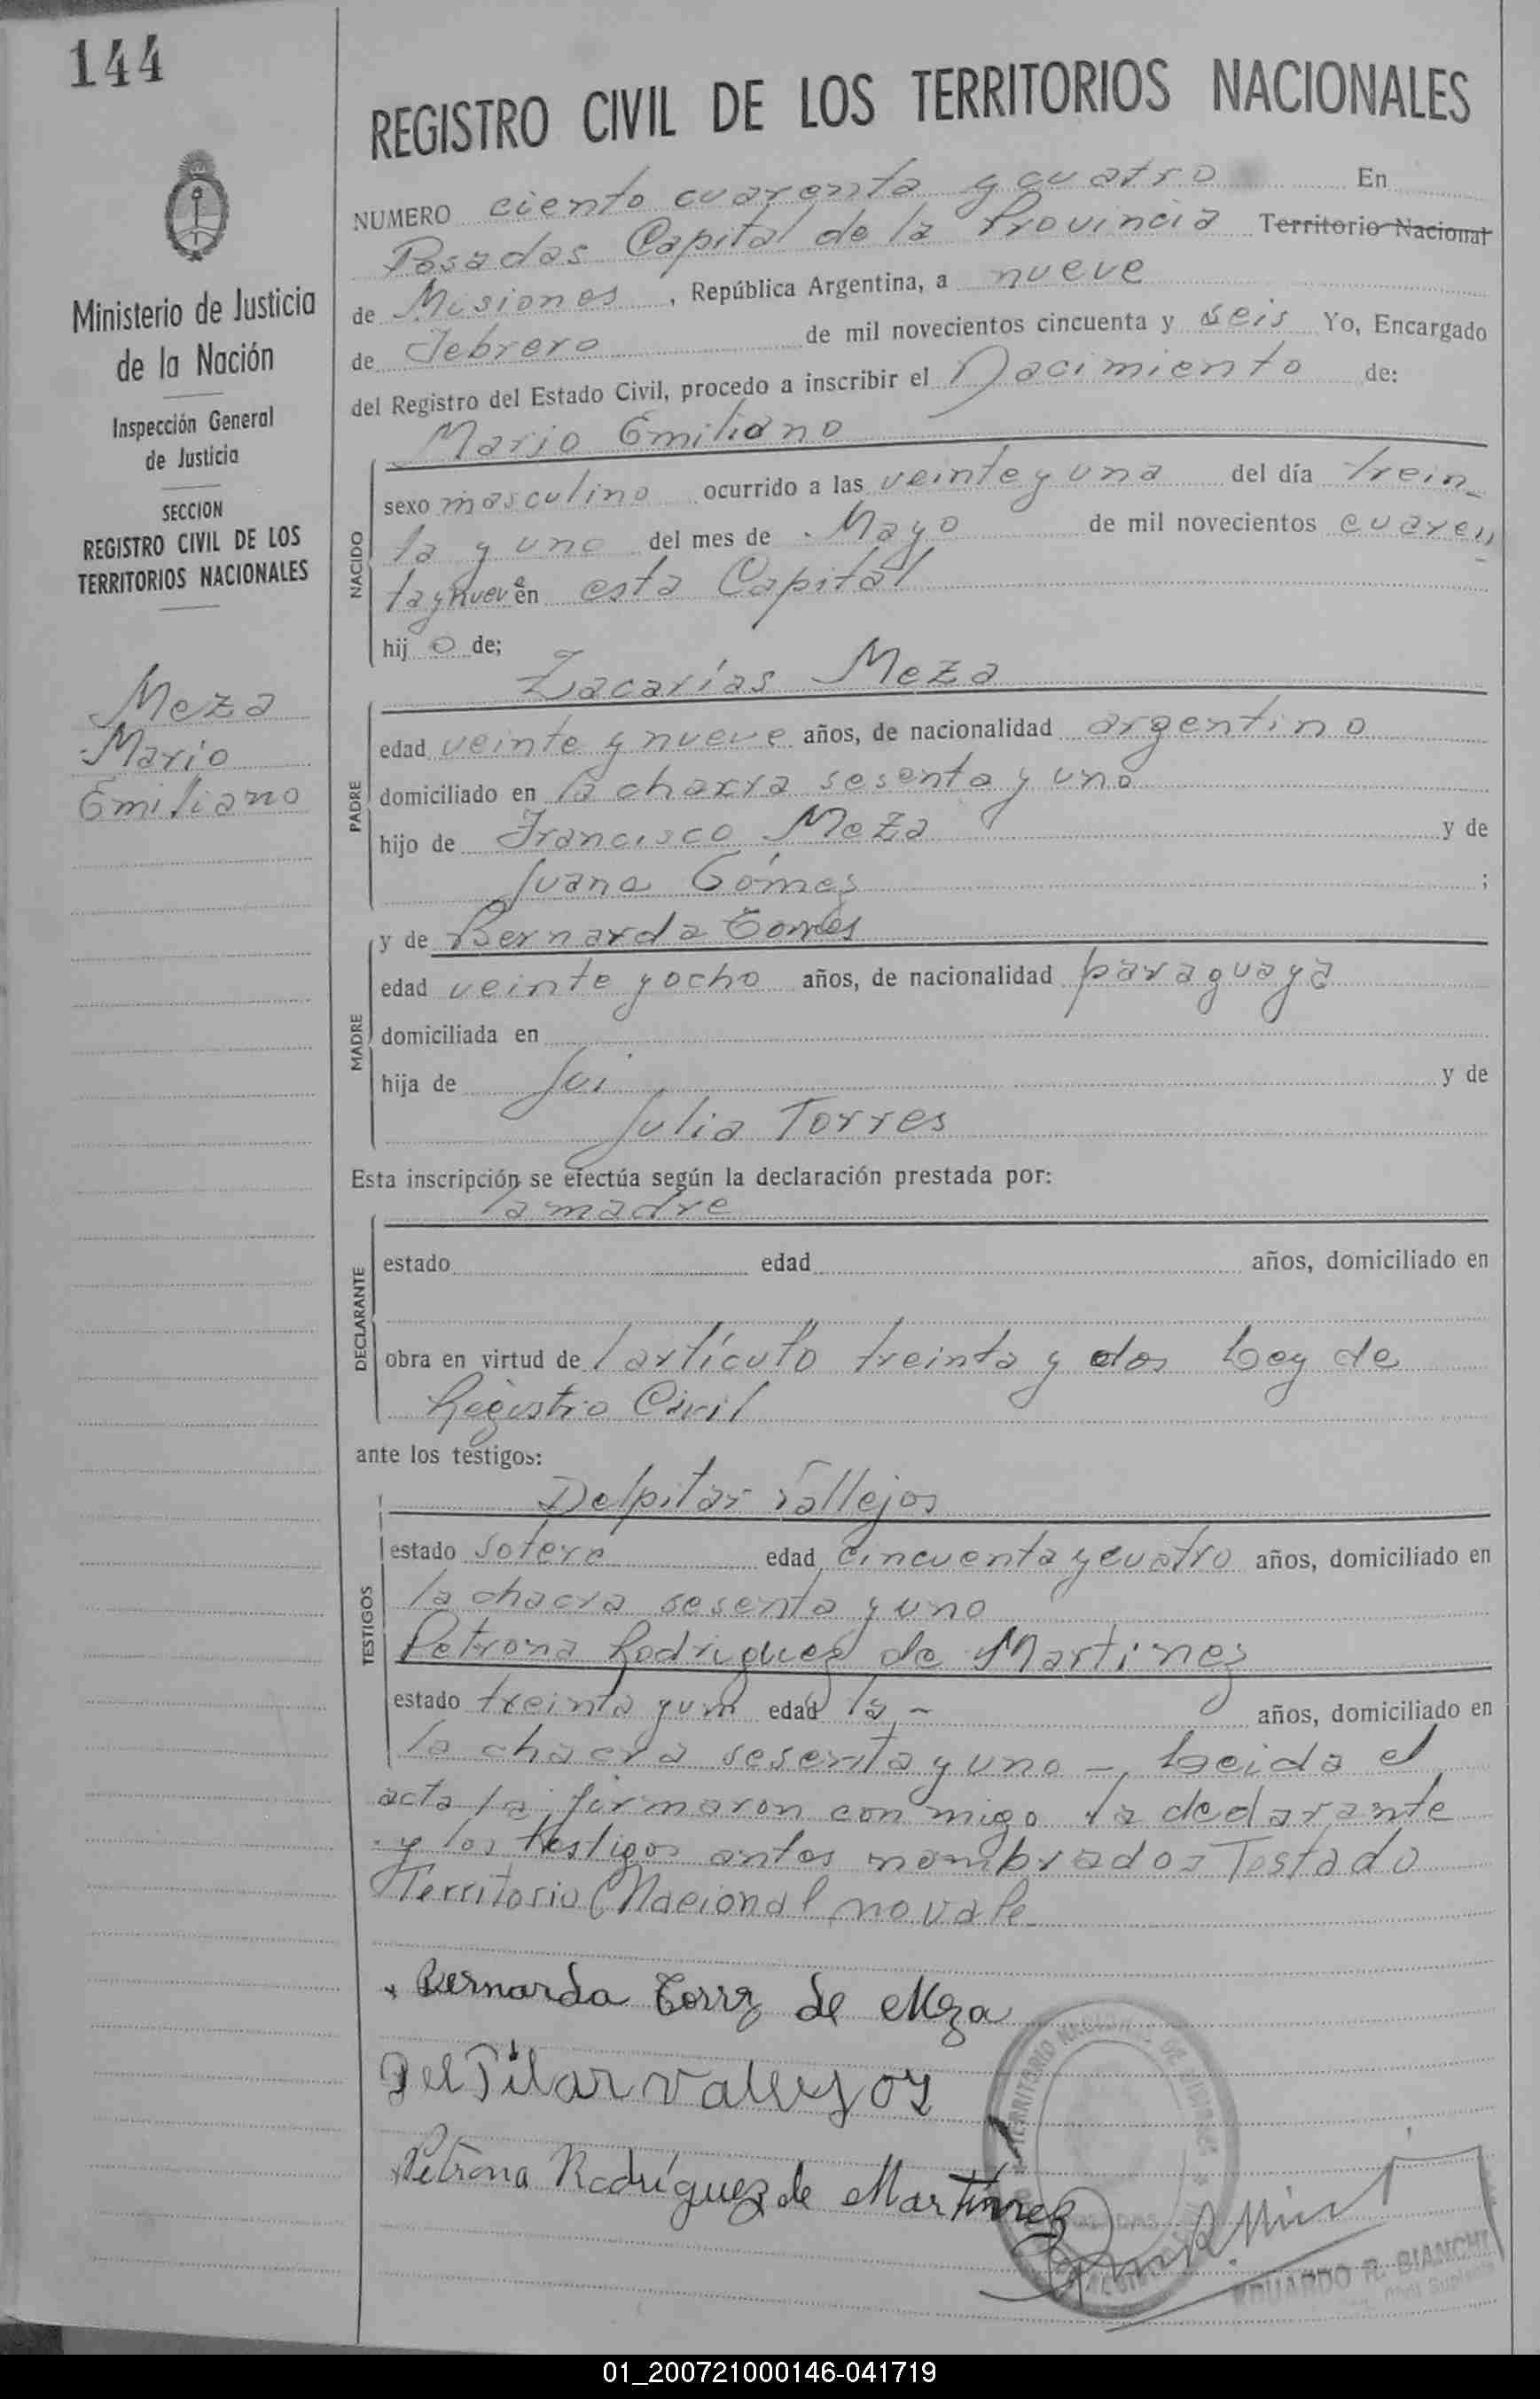 144
REGISTRO CIVIL DE LOS TERRITORIOS NACIONALES
NUMERO ciento cuarenta y cuatro En
Posadas Capital de la Provincia Territorio Nacional
de Misiones, República Argentina, a nueve
de Febrero de mil novecientos cincuenta y seis Yo, Encargado
del Registro del Estado Civil, procedo a inscribir el Nacimiento de:
Mario Emiliano
sexo masculino ocurrido a las veinte y una del día trein_
ta y uno del mes de Mayo de mil novecientos cuaren
ta y nueve en esta Capital
hijo de;
NACIDO
Zacarías Meza
edad veinte y nueve años, de nacionalidad argentino
domiciliado en la chacra sesenta y uno
hijo de Francisco Meza y de
Juana Gómez ;
PADRE
y de Bernarda Torres
edad veinte y ocho años, de nacionalidad paraguaya
domiciliada en
hija de y de
Julia Torres
MADRE
Esta inscripción se efectúa según la declaración prestada por:
la madre
estado edad años, domiciliado en
obra en virtud de l artículo treinta y dos Ley de
Registro Civil
DECLARANTE
ante los testigos:
Delpilar Vallejos
estado soltera edad cincuenta y cuatro años, domiciliado en
la chacra sesenta y uno
Petrona Rodriguez de Martinez
estado treinta y un edad la - años, domiciliado en
la chacra sesenta y uno - Leida el
TESTIGOS
acta la firmaron con migo la declarante
y los testigos antes nombrados Testado
Territorio Nacional no vale
Bernarda Torrez de Meza
Del Pilar Vallejos
Petrona Rodríguez de Martínez
EDUARDO R. BIANCHI
Ministerio de Justicia
de la Nación
Inspección General
de Justicia
SECCION
REGISTRO CIVIL DE LOS
TERRITORIOS NACIONALES
Meza
Mario
Emiliano
01_200721000146-041719